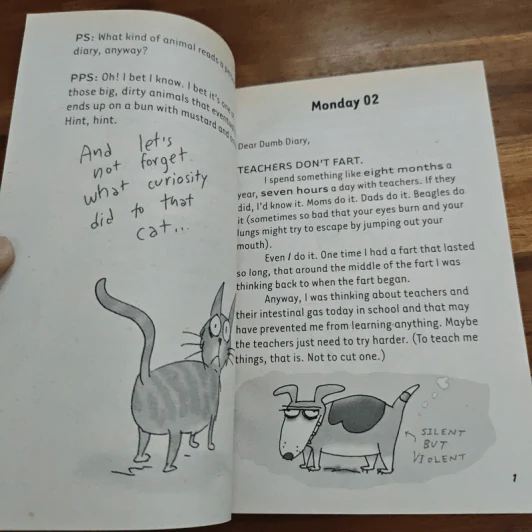 PS: What kind of animal reads a
diary, anyway?
PPS: Oh! I bet I know. I bet it's one
those big, dirty animals that
ends up on a bun with mustard and
Hint, hint.
And let's
not forget
what curiosity
did to that
cat...
Monday 02
Dear Dumb Diary,
TEACHERS DON'T FART.
I spend something like eight months a
year, seven hours a day with teachers. If they
did, I'd know it. Moms do it. Dads do it. Beagles do
it (sometimes so bad that your eyes burn and your
lungs might try to escape by jumping out your
mouth).
Even I do it. One time I had a fart that lasted
so long, that around the middle of the fart I was
thinking back to when the fart began.
Anyway, I was thinking about teachers and
their intestinal gas today in school and that may
have prevented me from learning anything. Maybe
the teachers just need to try harder. (To teach me
things, that is. Not to cut one.)
SILENT
BUT
VIOLENT
1